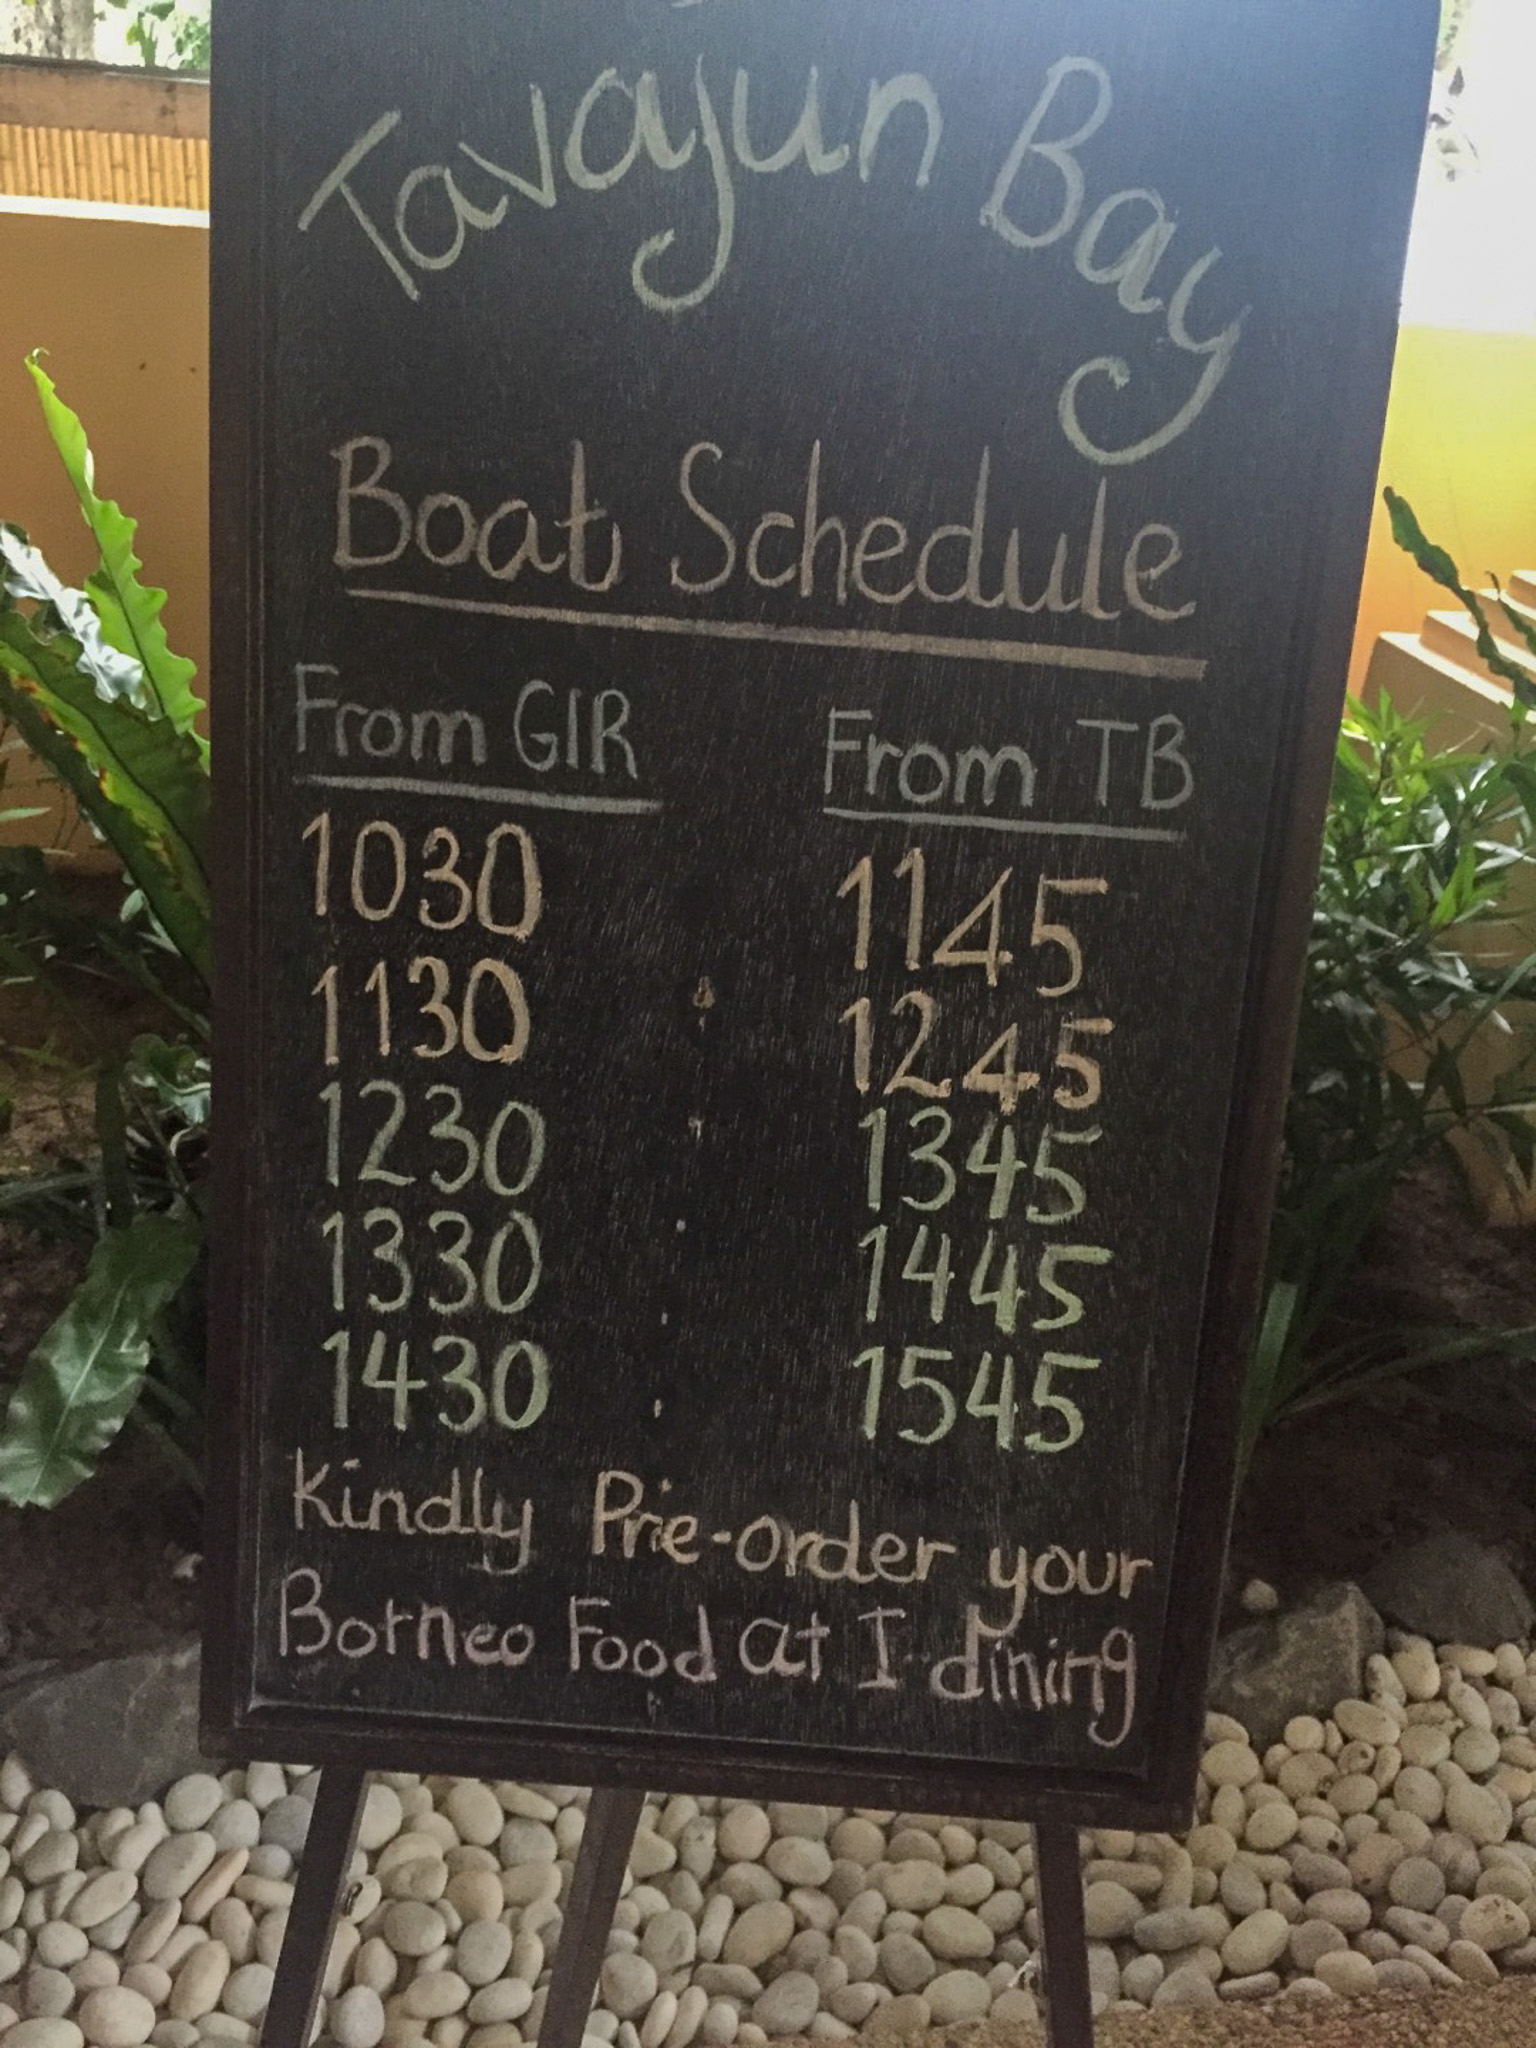 Tavajun Bay
Boat Schedule
From GIR From TB
1030 1145
1130 1245
1230 1345
1330 1445
1430 1545
Kindly Pre-order your
Borneo Food at I dining